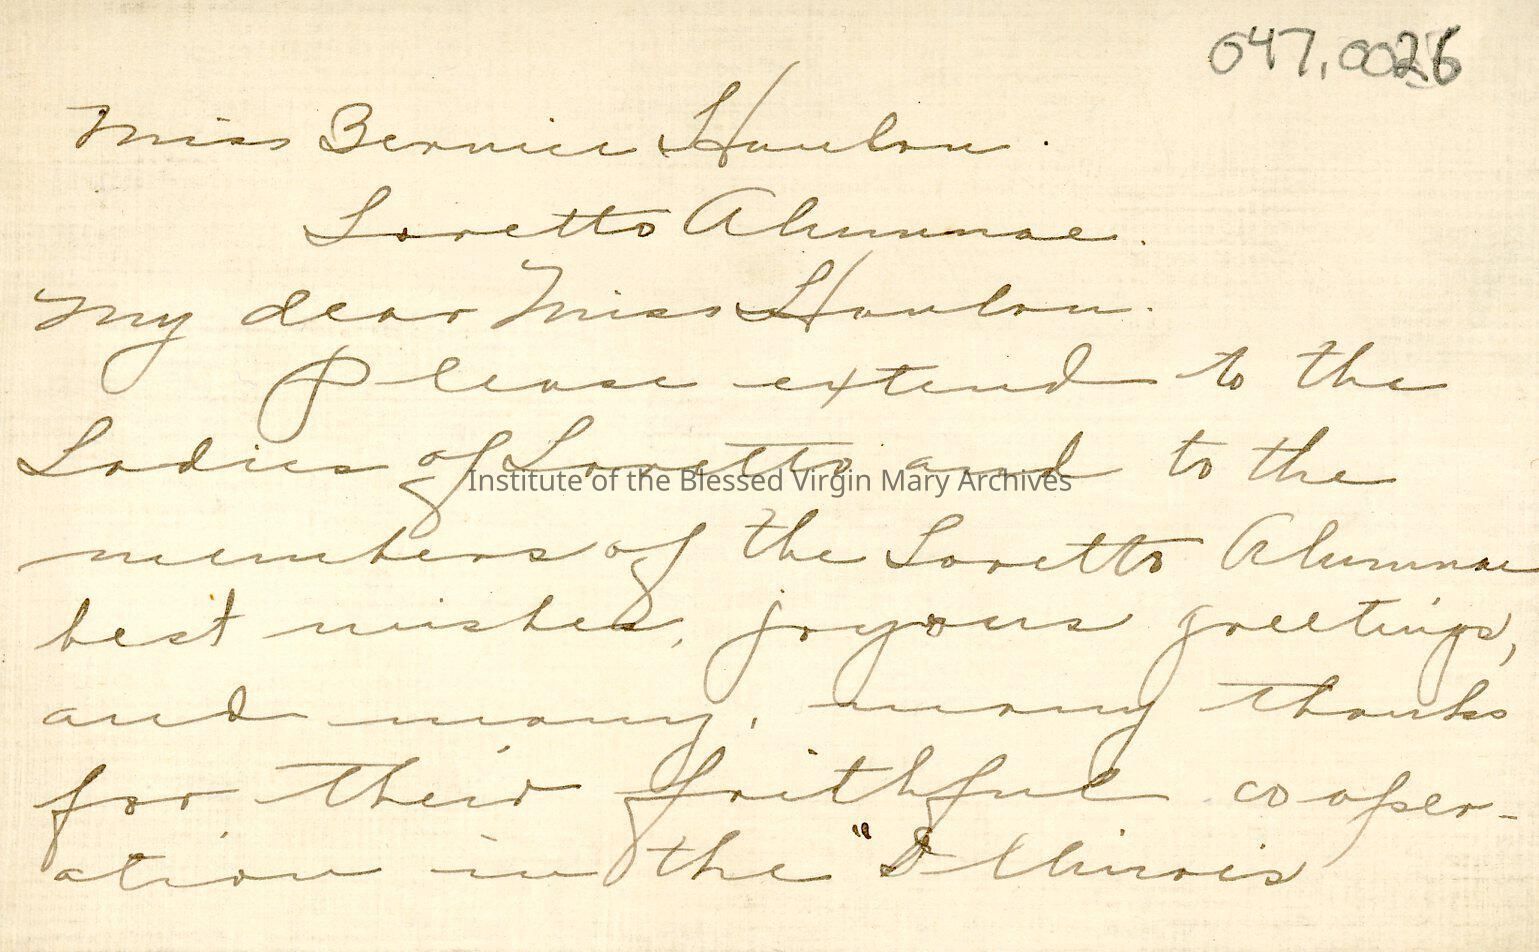 047.0026
Miss Bernice Hanlon.
Loretto Alumnae.
My dear Miss Hanlon.
Please extend to the
Ladies of Loretto and to the
Institute of the Blessed Virgin Mary Archives
members of the Loretto Alumnae
best wishes, joyous greetings,
and many, many thanks
for their faithful cooper-
ation in the "Illinois